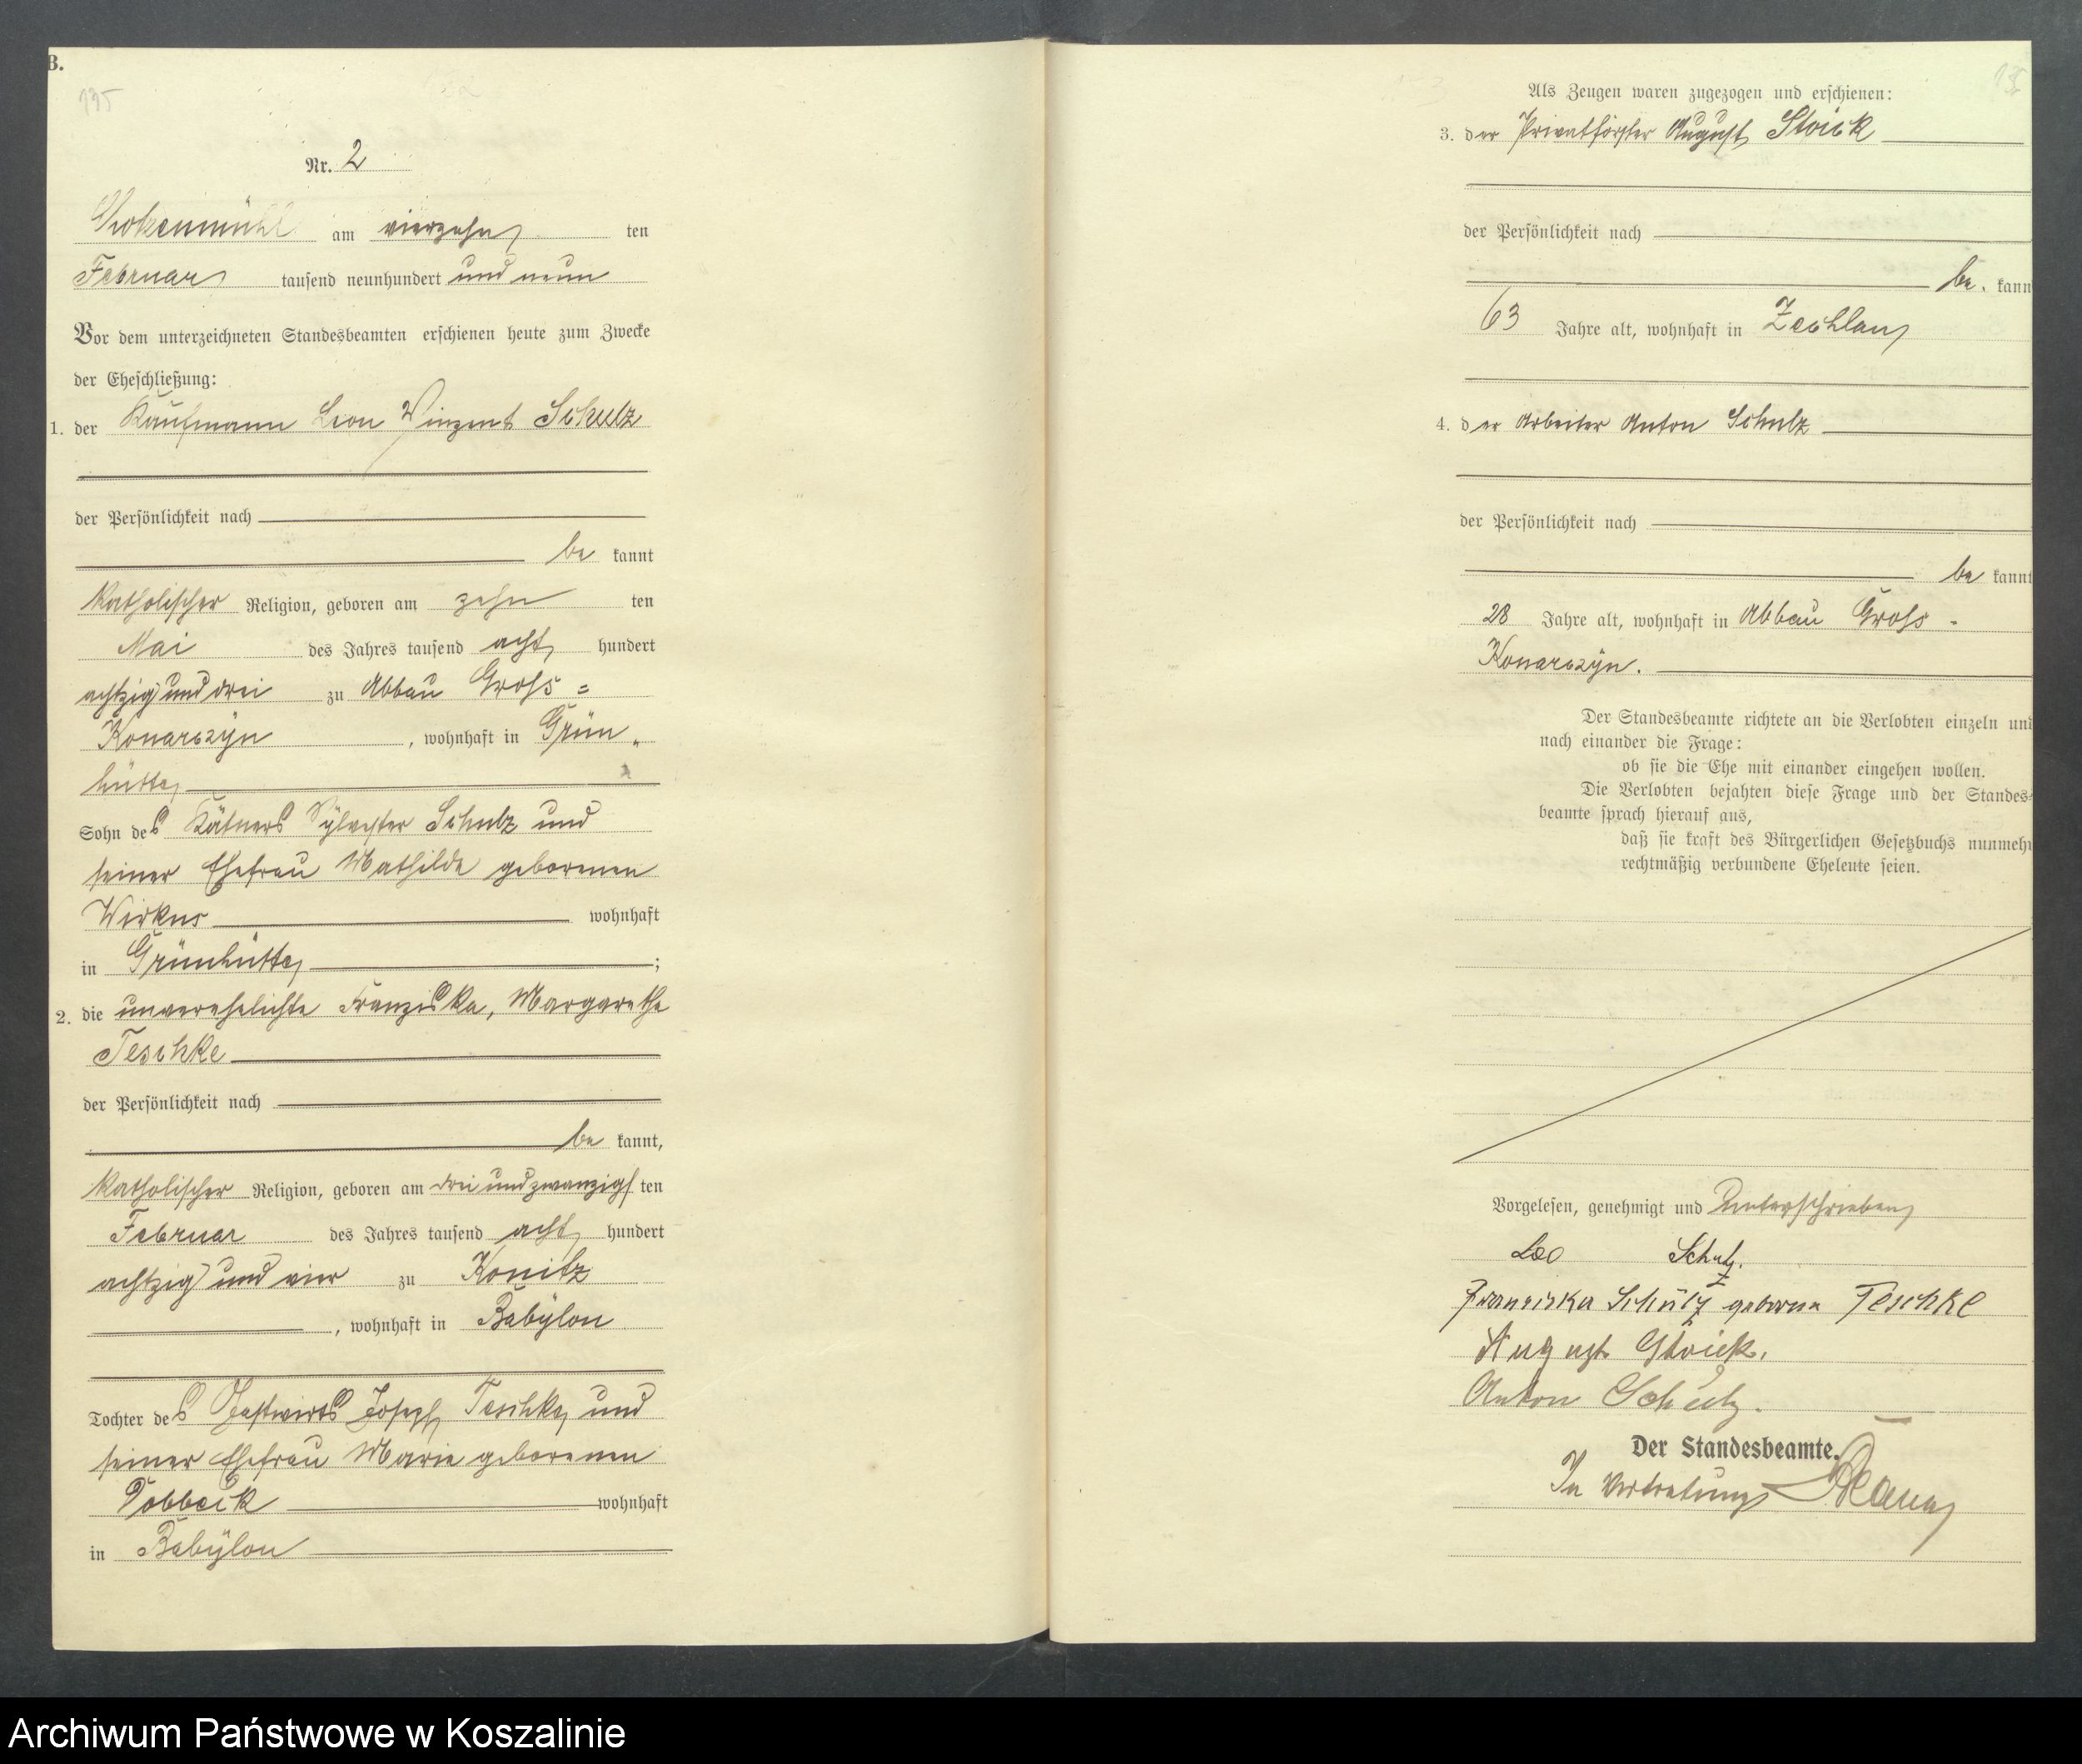 B.
195
Nr. 2
am vierzehn ten
Februar tausend neunhundert und neun
Vor dem unterzeichneten Standesbeamten erschienen heute zum Zwecke
der Eheschließung:
1. der Kaufmann Leon Vinzent Schulz
der Persönlichkeit nach
be kannt
katholischer Religion, geboren am zehn ten
Mai des Jahres tausend acht hundert
achtzig und drei zu Abbau Groß=
Konarczyn, wohnhaft in Grün„
hütte
Sohn des Kätners Sylvester Schulz und
seiner Ehefrau Mathilde geborenen
Wirkus wohnhaft
in Grünhütte ;
2. die unverehelichte Franziska, Margarethe
Teschke
der Persönlichkeit nach
be kannt,
katholischer Religion, geboren am dreiundzwanzigs ten
Februar des Jahres tausend acht hundert
achtzig und vier zu Konitz
, wohnhaft in Babylon
Tochter des Gastwirts Joseph Teschke und
seiner Ehefrau Marie geborenen
wohnhaft
in Babylon
Als Zeugen waren zugezogen und erschienen:
3. der Privatförster August Stoick
der Persönlichkeit nach
be. kann
63 Jahre alt, wohnhaft in Zechlau
4. der Arbeiter Anton Schulz
der Persönlichkeit nach
be kannt
28 Jahre alt, wohnhaft in Abbau Groß-
Konarczyn.
Der Standesbeamte richtete an die Verlobten einzeln und
nach einander die Frage:
ob sie die Ehe mit einander eingehen wollen.
Die Verlobten bejahten diese Frage und der Standes=
beamte sprach hierauf aus,
daß sie kraft des Bürgerlichen Gesetzbuchs nunmehr
rechtmäßig verbundene Eheleute seien.
Vorgelesen, genehmigt und unterschrieben
Leo Schulz.
Franziska Schulz geborene Teschke
August Stoick.
Anton Schulz.
Der Standesbeamte.
In Vertretung
Archiwum Państwowe w Koszalinie